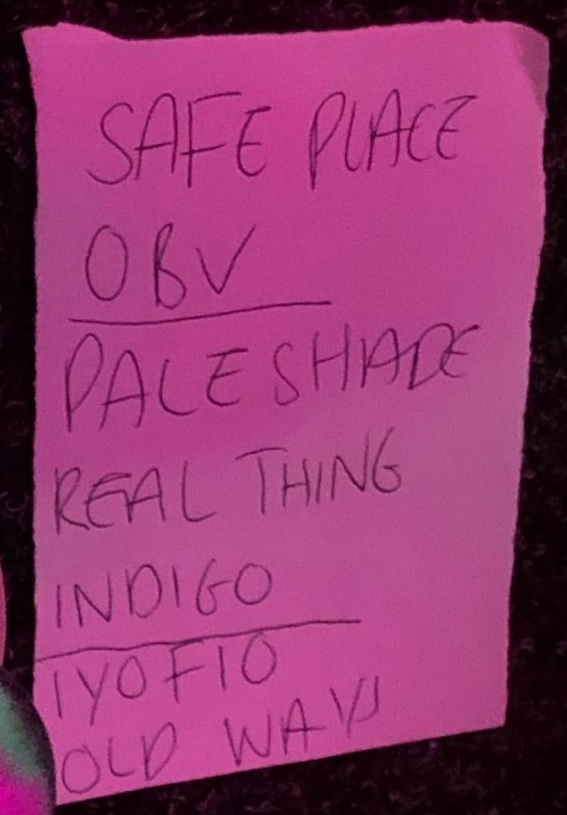 SAFE PLACE
OBV
PALE SHADE
REAL THING
INDIGO
IYOFIO
OLD WAYS